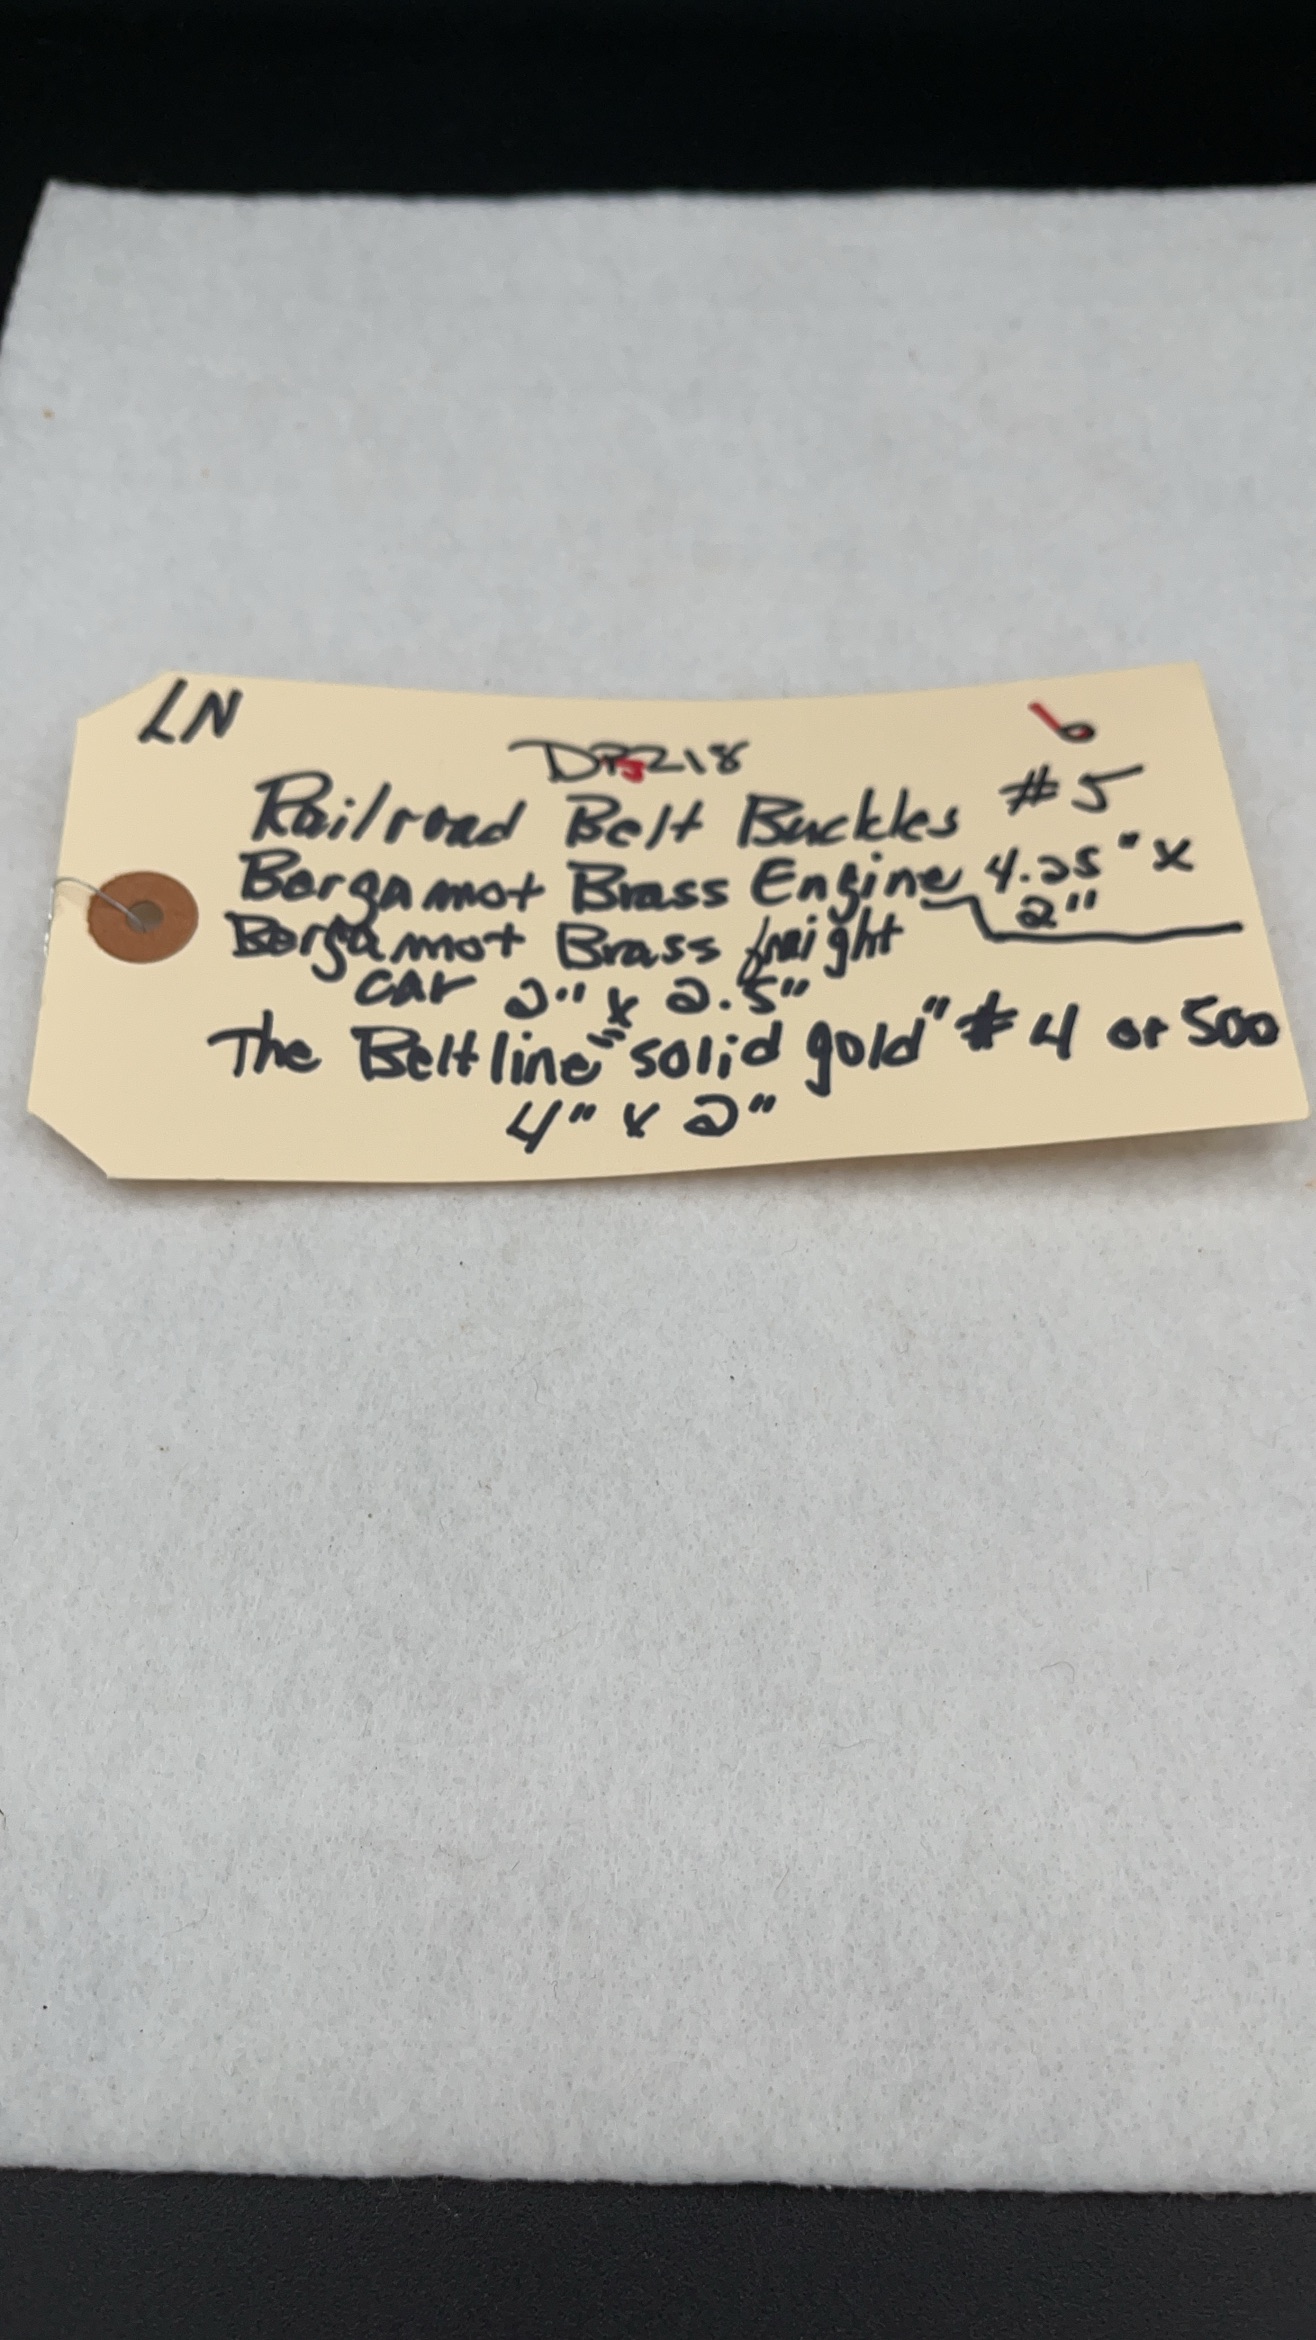 LN
6
DP3218
Railroad Belt Buckles #5
Bergamot Brass Engine 4.25" x
2"
Bergamot Brass freight
car 2" x 2.5"
The Beltline "solid gold" #4 or 500
4" x 2"